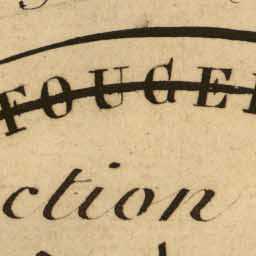 FOUGE
ction